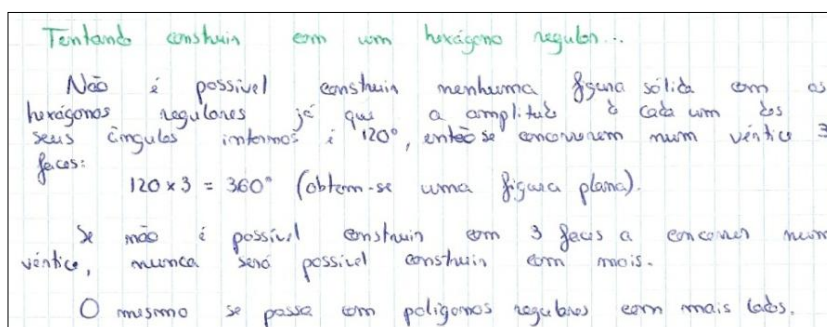 Tentando construir com um hexágono regular...
Não é possível construir nenhuma figura sólida com os
hexágonos regulares já que a amplitude de cada um dos
seus ângulos internos é 120°, então se concorrerem num vértice 3
faces:
120 x 3 = 360° (obtem-se uma figura plana).
Se não é possível construir com 3 faces a concorrer num
vértice, nunca será possível construir com mais.
O mesmo se passa com polígonos regulares com mais lados.